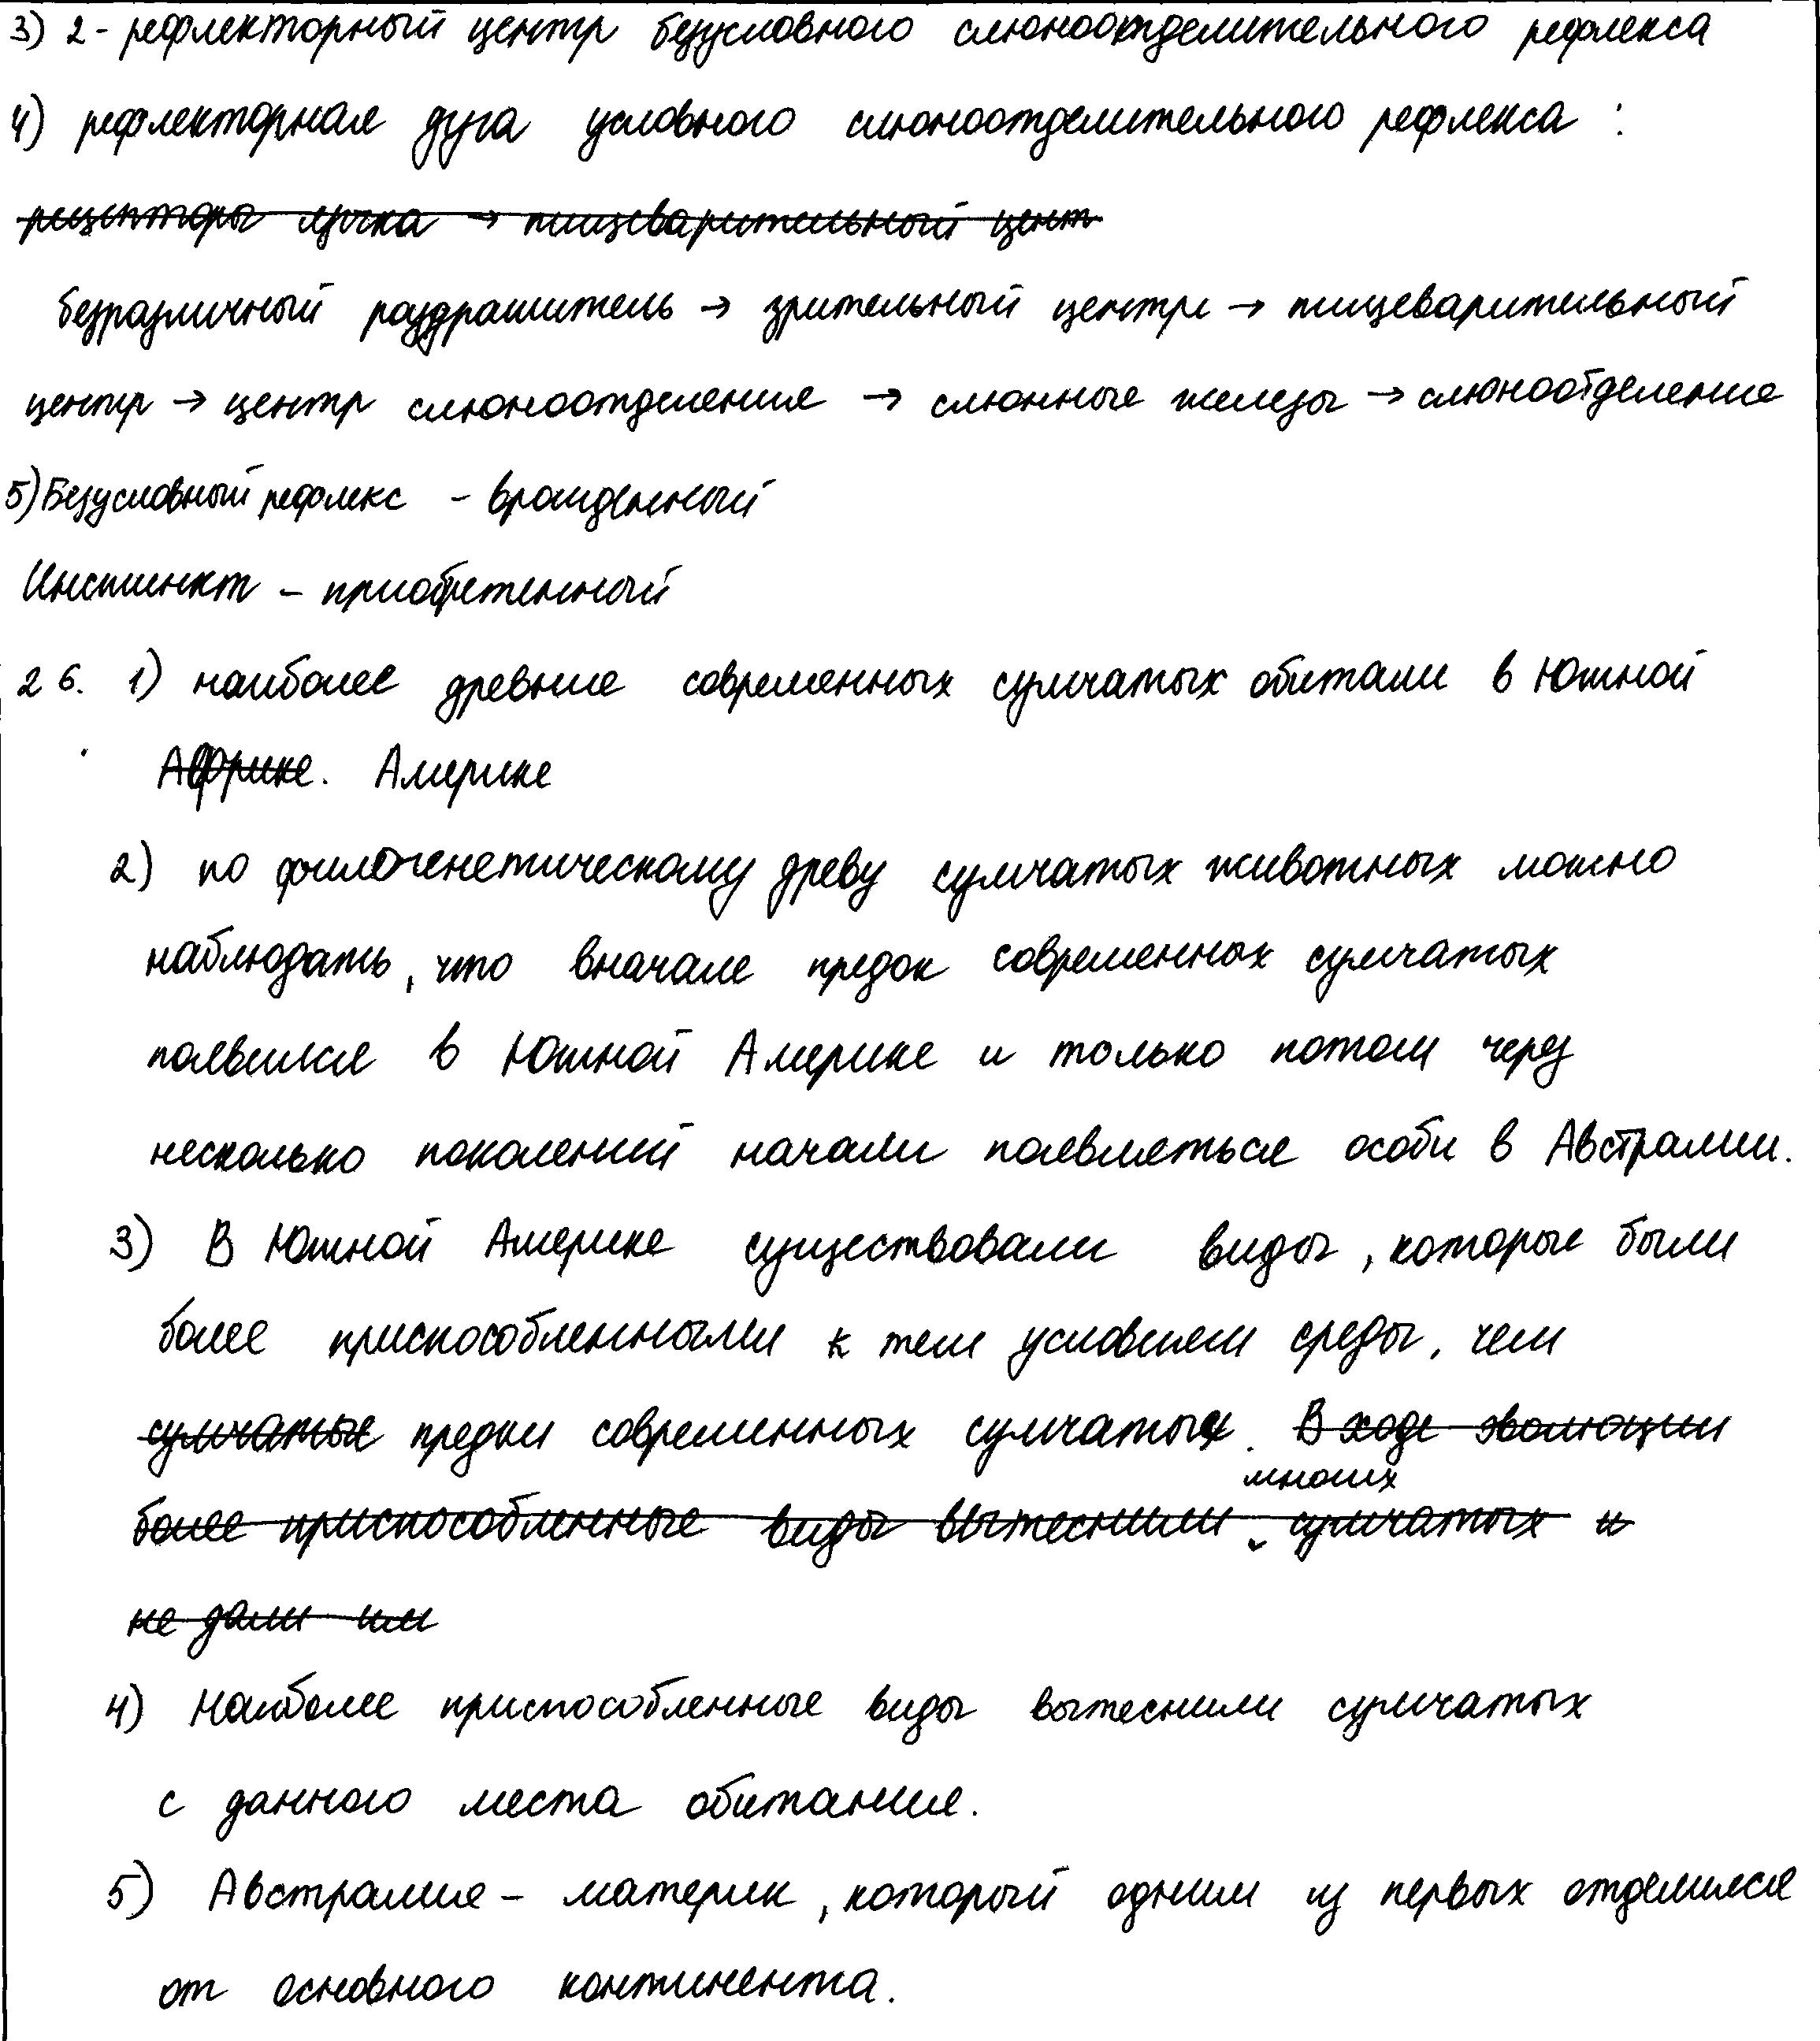 3) 2 - рефлекторный центр безусловного слюноотделительного рефлекса
4) рефлекторная дуга условного слюноотделительного рефлекса :
рецепторы язычка → пищеварительный цент
безразличный раздражитель → зрительный центр → пищеварительный
центр → центр слюноотделения → слюнные железы → слюноотделение
5) Безусловный рефлекс - врожденный
Инстинкт - приобретенный
26. 1) наиболее древние современных сумчатых обитали в Южной
Африке. Америке
2) по филогенетическому древу сумчатых животных можно
наблюдать, что вначале предок современных сумчатых
появился в Южной Америке и только потом через
несколько поколений начали появляться особи в Австралии.
3) В Южной Америке существовали виды, которые были
более приспособленными к тем условиям среды, чем
сумчатые предки современных сумчатых. В ходе эволюции
многих
более приспособленные виды вытеснили сумчатых и
не дали им
4) Наиболее приспособленные виды вытеснили сумчатых
с данного места обитания.
5) Австралия - материк, который одним из первых отделился
от основного континента.